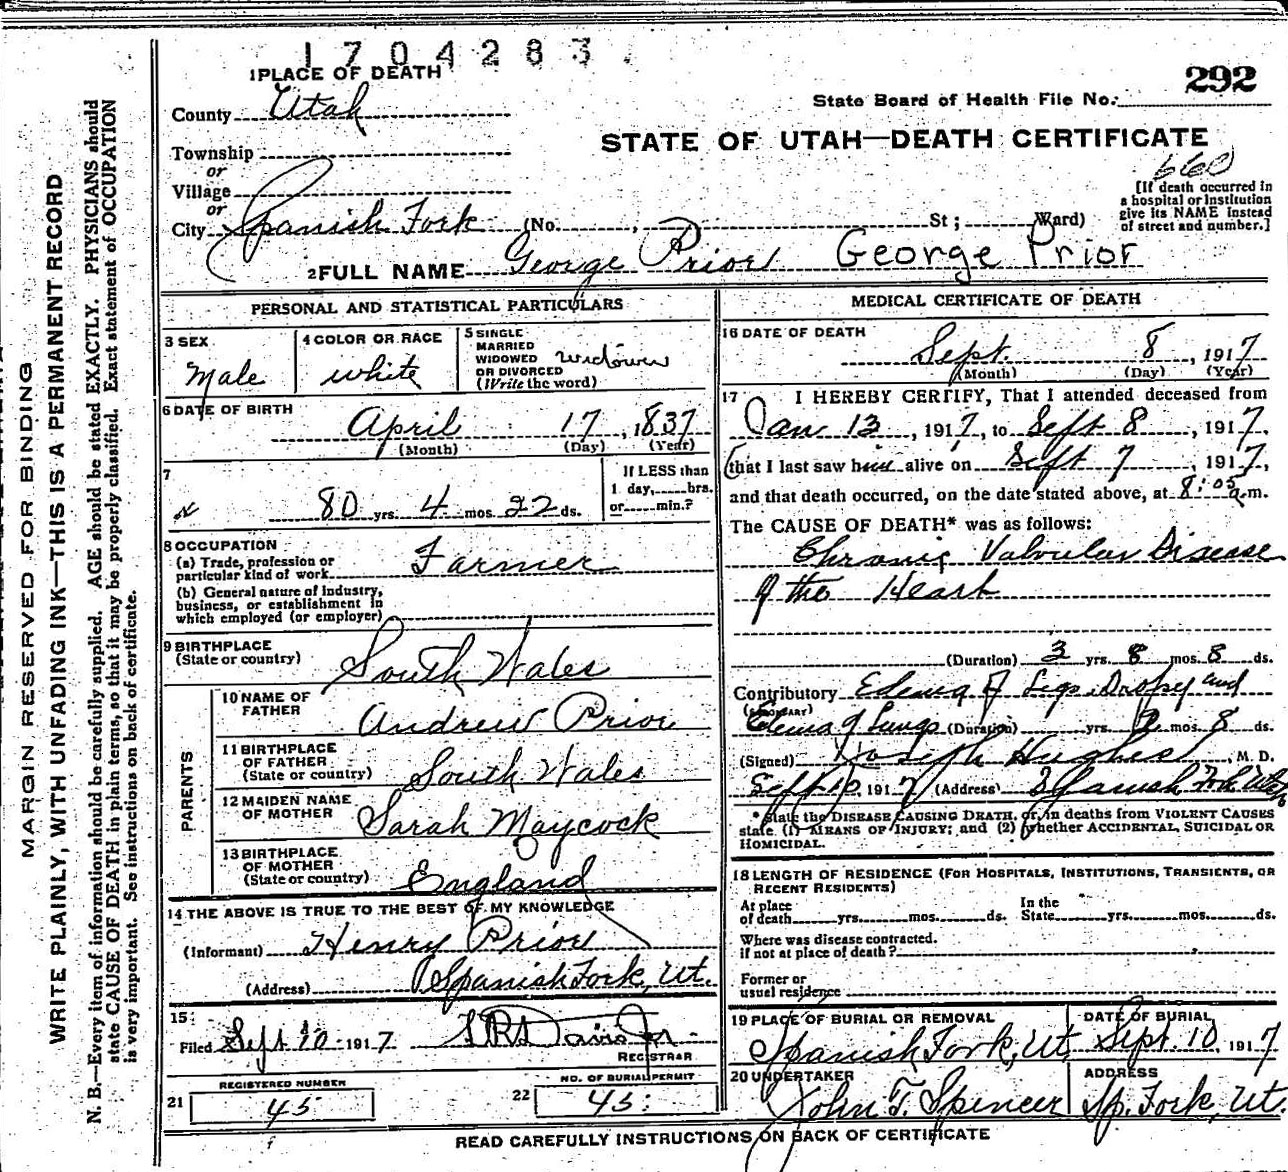 1704283
292
1 PLACE OF DEATH
State Board of Health File No.
County Utah
STATE OF UTAH—DEATH CERTIFICATE
660
Township
or
Village
or
City Spanish Fork (No. , St; Ward)
[If death occurred in
a hospital or institution
give its NAME instead
of street and number.]
2 FULL NAME George Prior George Prior
PERSONAL AND STATISTICAL PARTICULARS
3 SEX
Male
4 COLOR OR RACE
white
5 SINGLE
MARRIED
WIDOWED
OR DIVORCED
(Write the word)
widower
6 DATE OF BIRTH
April 17, 1837
(Month) (Day) (Year)
7
80 yrs. 4 mos. 22 ds.
If LESS than
1 day, hrs.
or min.?
8 OCCUPATION
(a) Trade, profession or
particular kind of work Farmer
(b) General nature of Industry,
business, or establishment in
which employed (or employer)
9 BIRTHPLACE
(State or country) South Wales
PARENTS
10 NAME OF
FATHER Andrew Prior
11 BIRTHPLACE
OF FATHER
(State or country) South Wales
12 MAIDEN NAME
OF MOTHER Sarah Maycock
13 BIRTHPLACE
OF MOTHER
(State or country) England
14 THE ABOVE IS TRUE TO THE BEST OF MY KNOWLEDGE
(Informant) Henry Prior
(Address) Spanish Fork, Ut.
15
Filed Sept 10 1917 Davis Jr
REGISTRAR
REGISTERED NUMBER
21 45
NO. OF BURIAL PERMIT
22 45
MEDICAL CERTIFICATE OF DEATH
16 DATE OF DEATH
Sept. 8, 1917
(Month) (Day) (Year)
17 I HEREBY CERTIFY, That I attended deceased from
Jan 13, 1917, to Sept 8, 1917,
that I last saw him alive on Sept 7, 1917,
and that death occurred, on the date stated above, at 8:05 a.m.
The CAUSE OF DEATH* was as follows:
Chronic Valvular Disease
of the Heart
(Duration) 3 yrs. 8 mos. 8 ds.
Contributory Edema of Legs Dropsy and
(SECONDARY)
Edema of Lungs (Duration) yrs. mos. 8 ds.
(Signed) Joseph Hughes, M. D.
Sept 10, 1917 (Address) Spanish Fork Utah
* State the DISEASE CAUSING DEATH, or, in deaths from VIOLENT CAUSES
state (1) MEANS OF INJURY; and (2) whether ACCIDENTAL, SUICIDAL OR
HOMICIDAL.
18 LENGTH OF RESIDENCE (FOR HOSPITALS, INSTITUTIONS, TRANSIENTS, OR
RECENT RESIDENTS)
At place
of death yrs. mos. ds.
In the
State yrs. mos. ds.
Where was disease contracted.
if not at place of death?
Former or
usual residence
19 PLACE OF BURIAL OR REMOVAL
Spanish Fork, Ut.
DATE OF BURIAL
Sept. 10, 1917
20 UNDERTAKER
John T. Spencer
ADDRESS
Sp. Fork, Ut.
READ CAREFULLY INSTRUCTIONS ON BACK OF CERTIFICATE
MARGIN RESERVED FOR BINDING
WRITE PLAINLY, WITH UNFADING INK—THIS IS A PERMANENT RECORD
N. B.—Every item of information should be carefully supplied. AGE should be stated EXACTLY. PHYSICIANS should
state CAUSE OF DEATH in plain terms, so that it may be properly classified. Exact statement of OCCUPATION
is very important. See instructions on back of certificate.